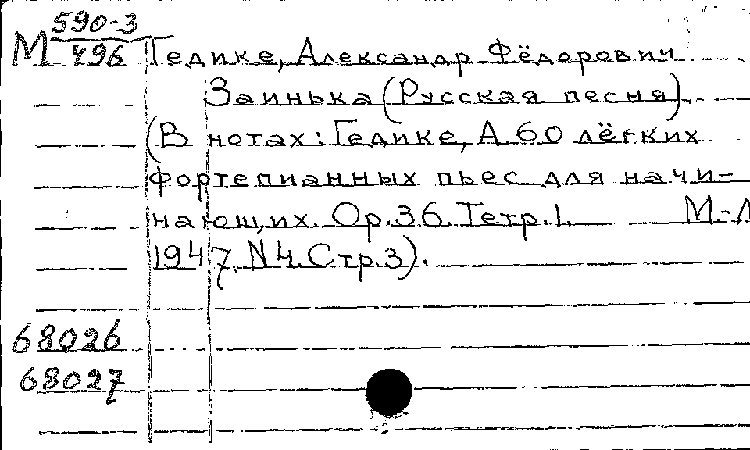 590-3
М 496 Гедике, Александр Фёдорович
Заинька (Русская песня).
(В нотах: Гедике, А. 60 лёгких
фортепианных пьес для начи-
нающих. Ор. 36. Тетр. 1. М.-Л
1947. N 4. Стр. 3).
68026
68027